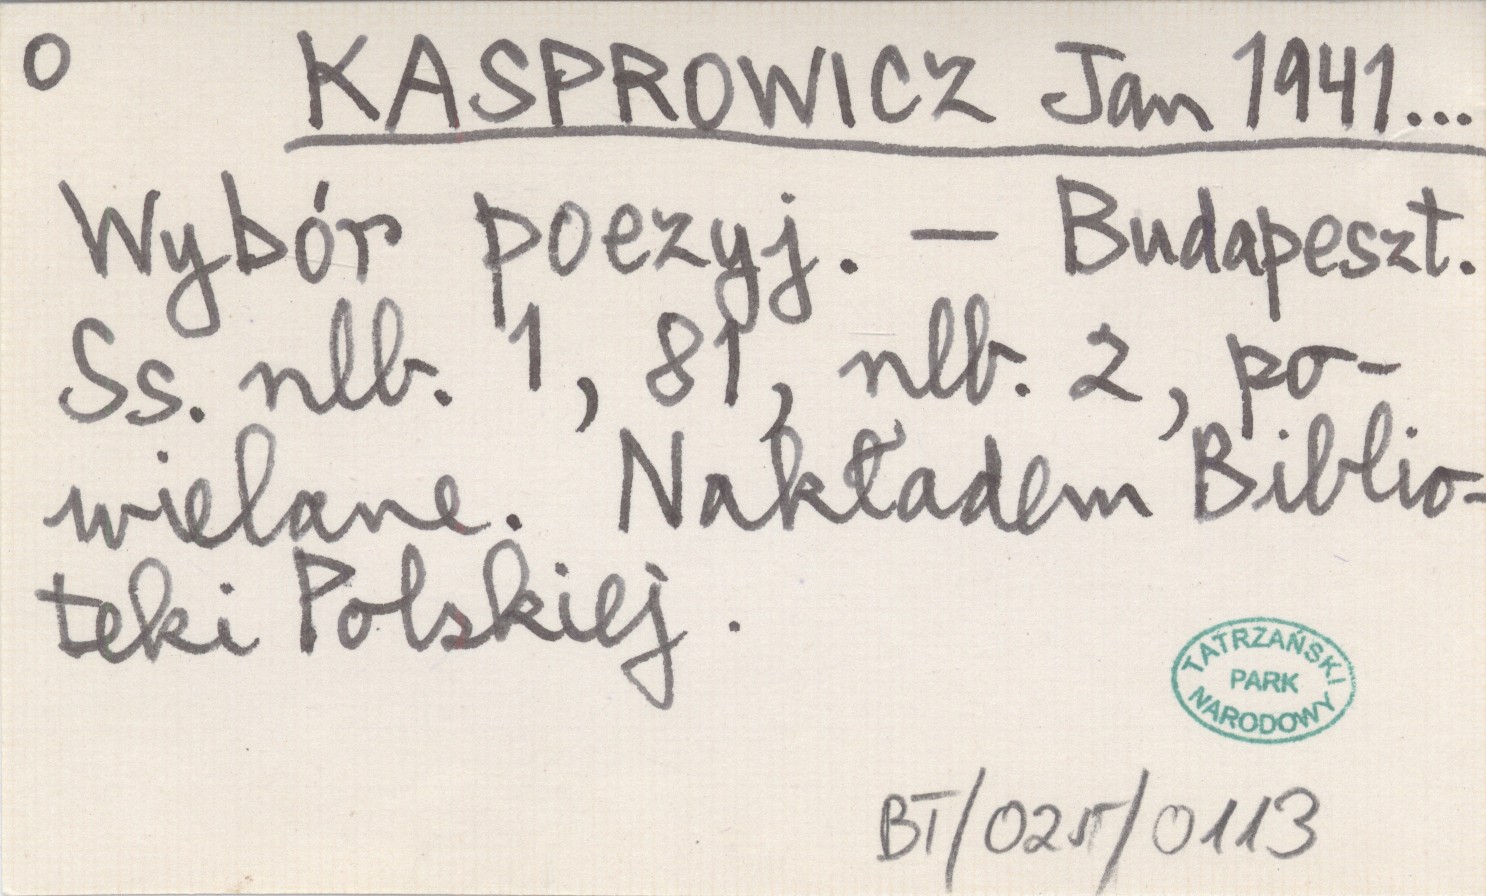 O KASPROWICZ Jan 1941...
Wybór poezyj. — Budapeszt.
Ss. nlb. 1, 81, nlb. 2, po-
wielane. Nakładem Biblio-
teki Polskiej.
TATRZAŃSKI
PARK
NARODOWY
BT/025/0113